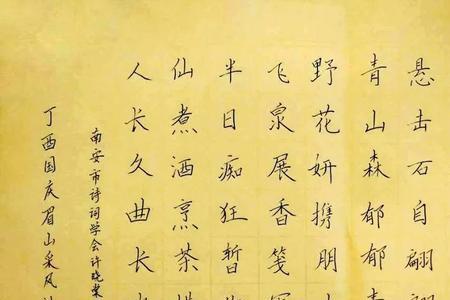 悬击石自翩翩
青山森郁郁
野花妍携朋
飞泉展香笺
半日痴狂暂
仙煮酒烹茶
人长久曲长
南安市诗词学会许晓
丁酉国庆眉山采风